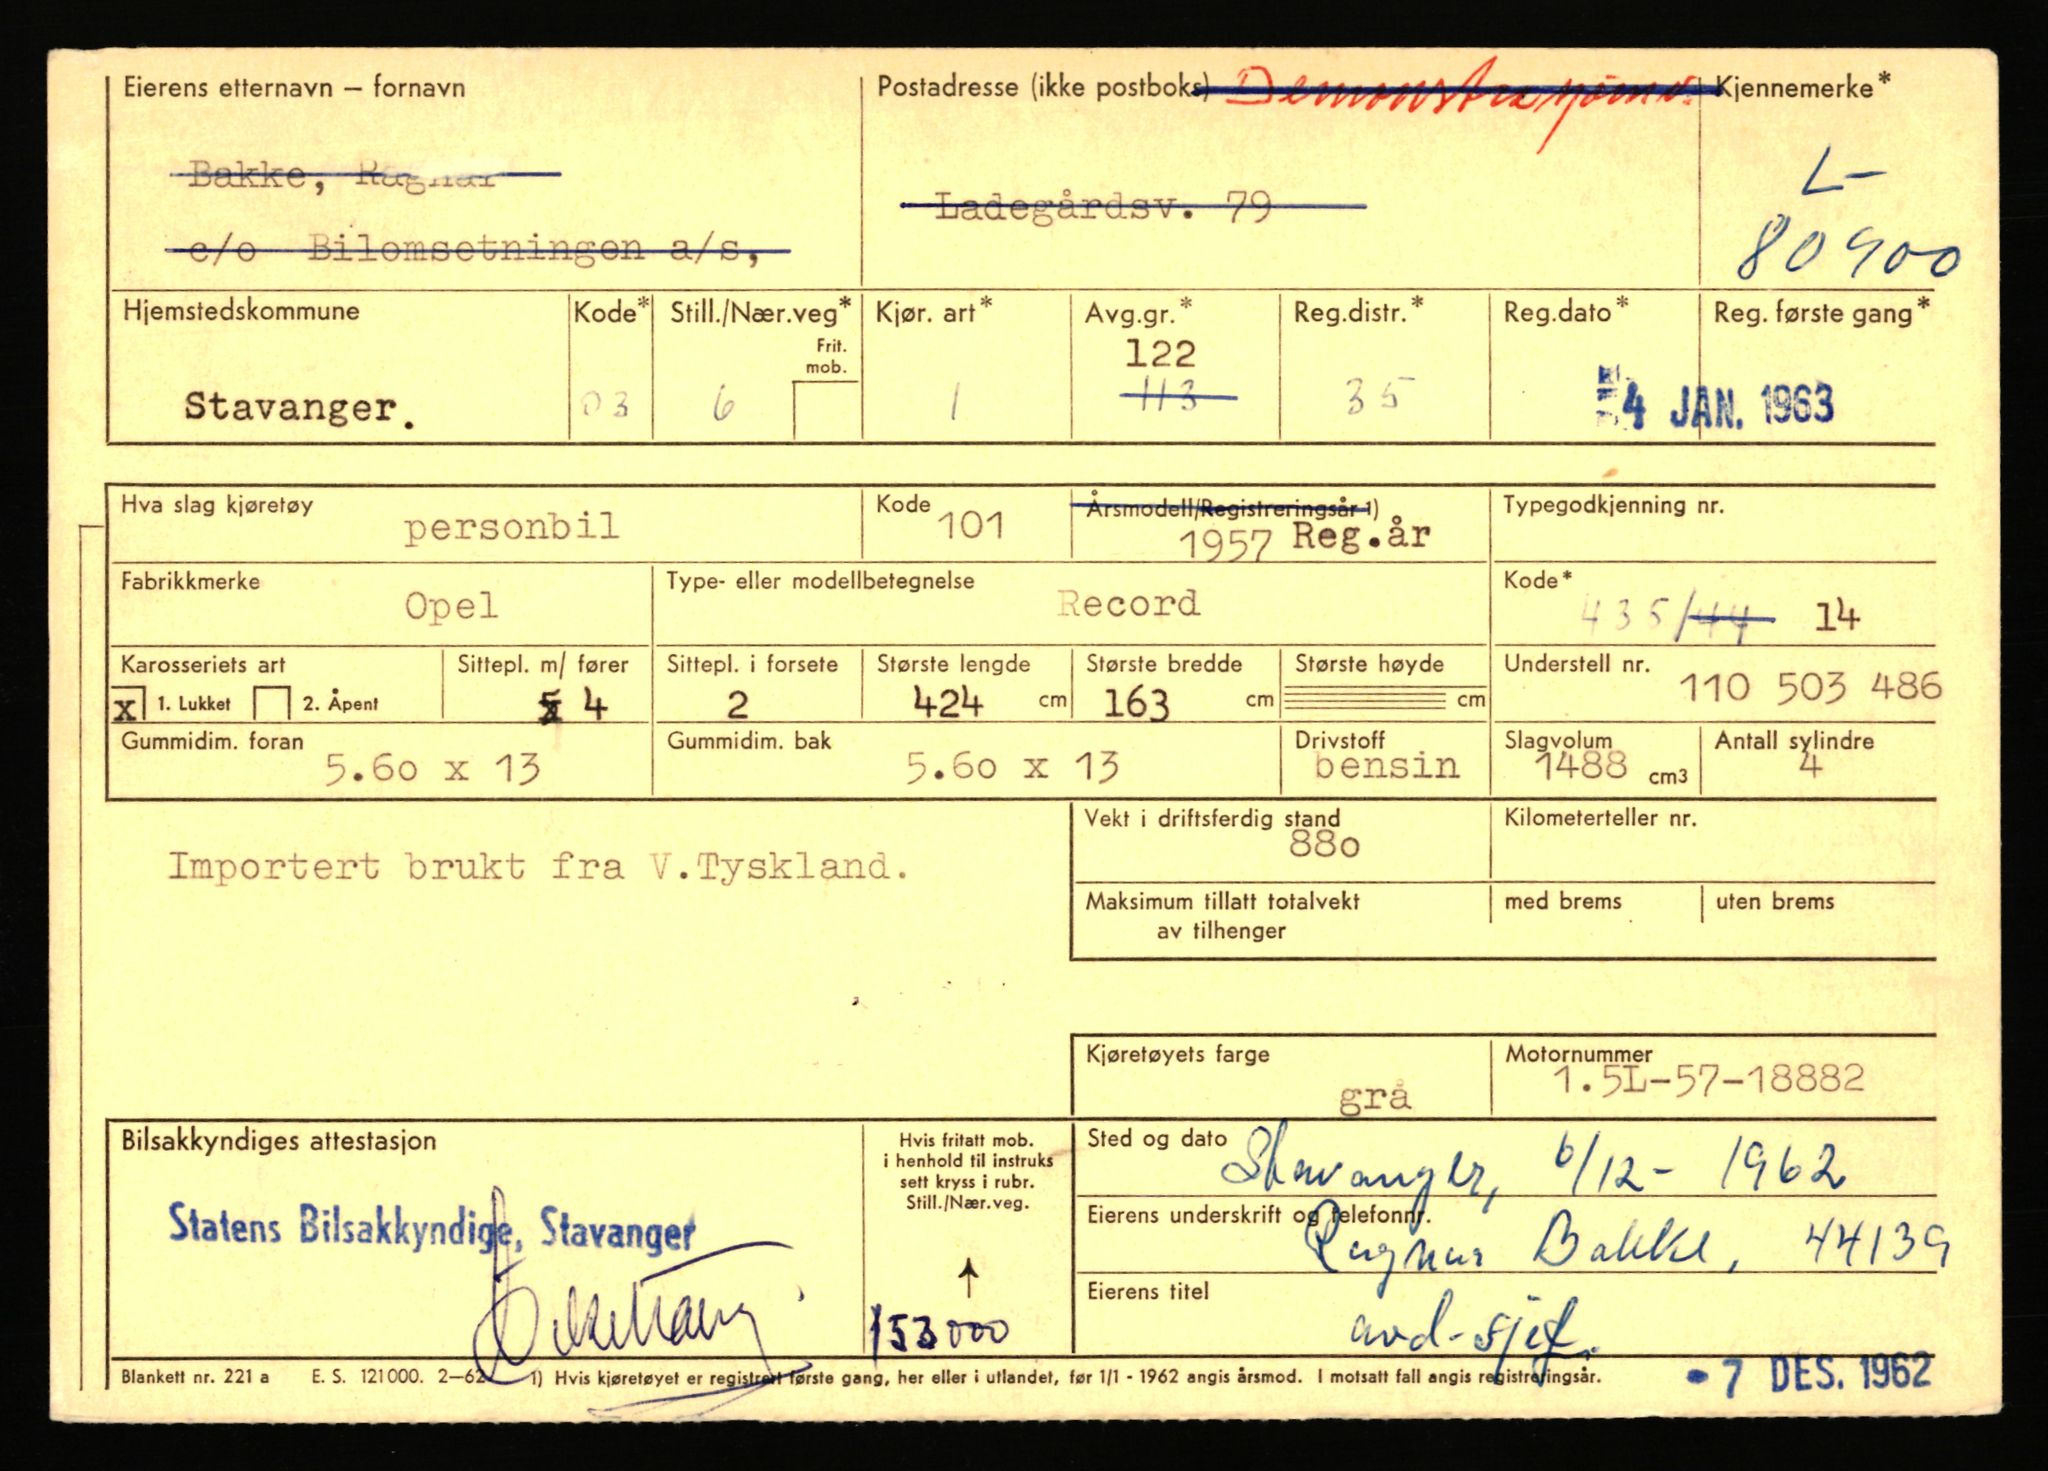 Eierens etternavn – fornavn
Postadresse (ikke postboks)
Kjennemerke*
Bakke, Ragnar
c/o Bilomsetningen a/s,
Ladegårdsv. 79
L-
80900
Hjemstedskommune
Kode*
Still./Nær.veg*
Frit.
mob.
Kjør. art*
Avg.gr.*
Reg.distr.*
Reg.dato*
Reg. første gang*
122
Stavanger.
03
6
1
113
35
4 JAN. 1963
Hva slag kjøretøy
personbil
Kode
101
Årsmodell/Registreringsår 1)
1957 Reg.år
Typegodkjenning nr.
Fabrikkmerke
Opel
Type- eller modellbetegnelse
Record
Kode*
435/44 14
Karosseriets art
x 1. Lukket 2. Åpent
Sittepl. m/ fører
5 4
Sittepl. i forsete
2
Største lengde
424 cm
Største bredde
163 cm
Største høyde
cm
Understell nr.
110 503 486
Gummidim. foran
5.60 x 13
Gummidim. bak
5.60 x 13
Drivstoff
bensin
Slagvolum
1488 cm3
Antall sylindre
4
Importert brukt fra V.Tyskland.
Vekt i driftsferdig stand
880
Kilometerteller nr.
Maksimum tillatt totalvekt
av tilhenger
med brems
uten brems
Kjøretøyets farge
grå
Motornummer
1.5L-57-18882
Bilsakkyndiges attestasjon
Statens Bilsakkyndige, Stavanger
Hvis fritatt mob.
i henhold til instruks
sett kryss i rubr.
Still./Nær.veg.
153000
Sted og dato
Stavanger, 6/12- 1962
Eierens underskrift og telefonnr.
Ragnar Bakke, 44139
Eierens titel
avd-sjef.
Blankett nr. 221 a E. S. 121000. 2–62 1) Hvis kjøretøyet er registrert første gang, her eller i utlandet, før 1/1 - 1962 angis årsmod. I motsatt fall angis registreringsår.
7 DES. 1962